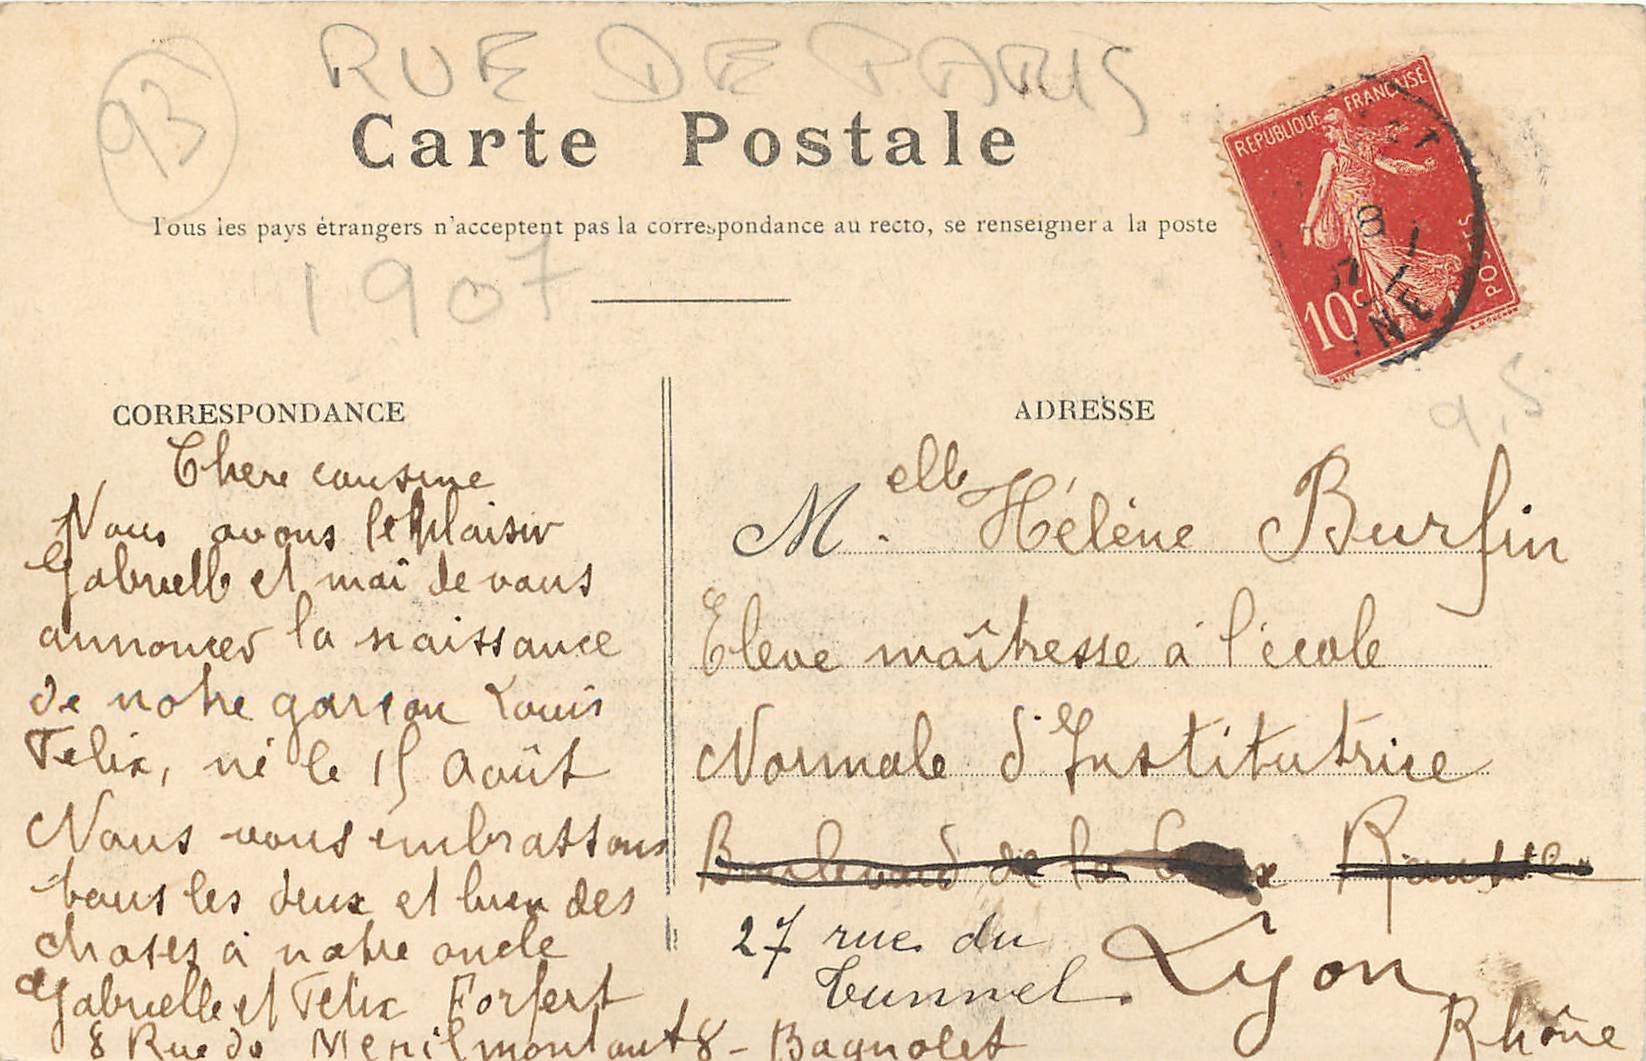 93
RUE DE PARIS
Carte Postale
Tous les pays étrangers n'acceptent pas la correspondance au recto, se renseigner a la poste
1907
REPUBLIQUE FRANÇAISE
POSTES
10c
NE
9,5
CORRESPONDANCE
Chere cousine
Nous avons le plaisir
Gabrielle et moi de vous
annoncer la naissance
de notre garcon Louis
Felix, né le 15 Août
Nous vous embrassons
tous les deux et bien des
choses à notre oncle
Gabrielle et Felix Forfert
8 Rue de Menilmontant 8 - Bagnolet
ADRESSE
Melle Hélène Burfin
Eleve maîtresse à l'école
Normale d'Institutrice
Boulevard de la Croix Rousse
27 rue du
Tunnel. Lyon
Rhône